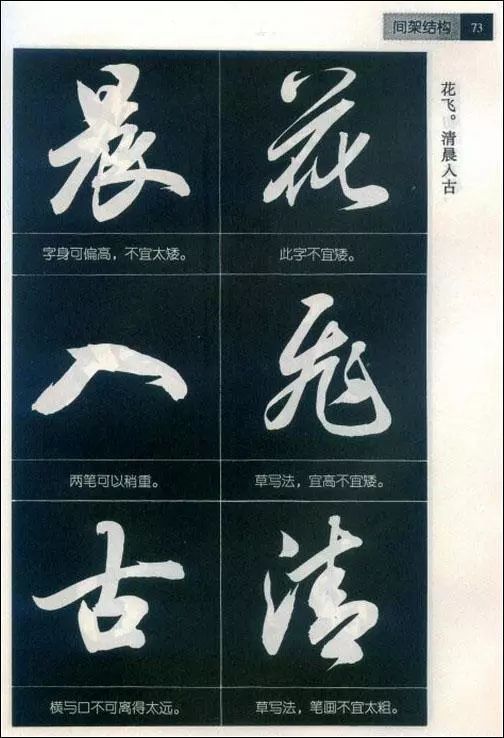 间架结构 73
花飞。清晨入古
花
此字不宜矮。
飞
草写法，宜高不宜矮。
清
草写法，笔画不宜太粗。
晨
字身可偏高，不宜太矮。
入
两笔可以稍重。
古
横与口不可离得太远。